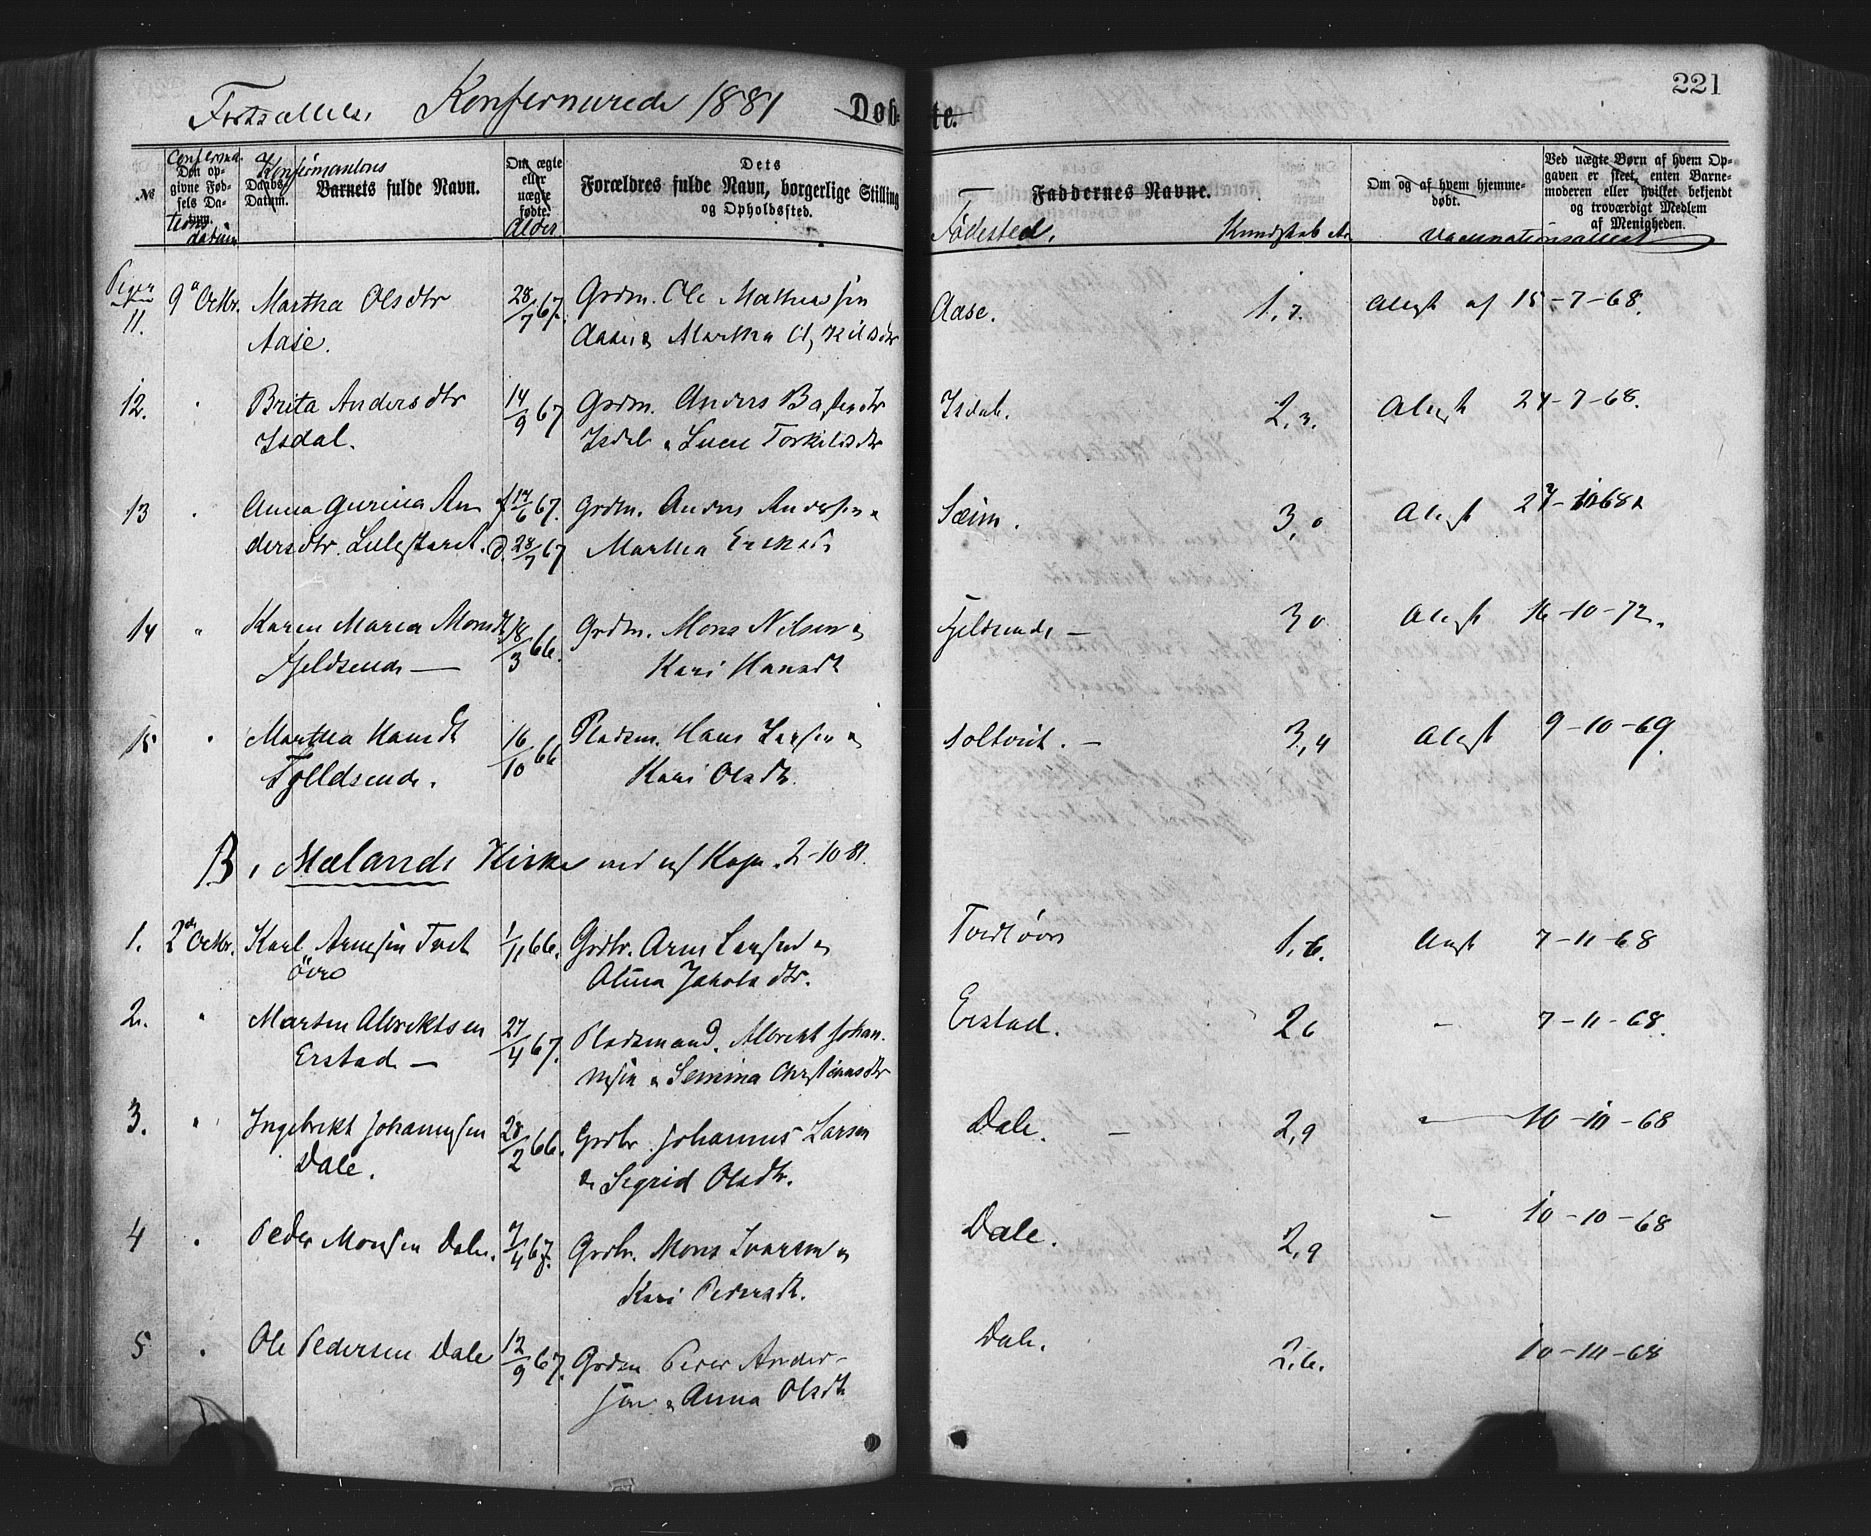 221
Fortsættelse, Konfirmerede 1881 Døb- te.
№
Confirma-
Den op-
givne Fød-
sels Da-
tum.
tions
datum
Daabs-
Datum.
Konfirmantens
Barnets fulde Navn.
Om ægte
eller
uægte
fødte.
Alder
Dets
Forældres fulde Navn, borgerlige Stilling
og Opholdssted.
Faddernes Navne.
Fødested.
Kundskab
Om og af hvem hjemme-
døbt.
Ved uægte Børn af hvem Op-
gaven er skeet, enten Barne-
moderen eller hvilket bekjendt
og troværdigt Medlem
af Menigheden.
Vaccinationsattest
Piger
11. 9de Octbr. Martha Olsdtr 28/7 67. Grdm. Ole Mathiassen Aase. 1,7. Attest af 15-7-68.
Aase. Martha
12. " Brita Andersdtr 14/9 67 Grdm. Anders Isdal. 2,3. Attest 24-7-68.
Isdal. Isdal & Torkildsdtr
13 " Anna Gurina An f 14/6 67. Grdm. Anders Andersen & Sæim. 3,0 Attest
dersdtr. D. 28/7 67 Martha
14 " Karen Maria Monsdt 18/3 66. Grdm. Mons Nilsen & Fjeldsende — 30 Attest 16-10-72.
Fjeldsende — Kari Hansdt
15 " Martha Hansdt 16/10 66 Pladsm. Hans Larsen & Toltvedt. — 3,4 Attest 9-10-69.
Fjeldsende. Kari Olsdtr.
B, i Mælands Kirke ved 2-10-81.
1. 2den Octbr. Karl Arnesen Tvedt 1/11 66. Grdbr. Arne Larsen & 1,6. Attest 7-11-68
øvre Olina Jakobsdtr.
2. " Marten Albrektsen 27/4 67. Pladsmand. Albrekt Johan- Erstad. 26 " 7-11-68.
Erstad — nesen & Semina Christiansdtr
3. " Ingebrikt Johannesen 28/2 66. Grdbr. Johannes Larsen Dale. — 2,9 " 10-10-68
Dale. & Sigrid Olsdtr.
4 " Peder Monsen Dale. 7/4 67. Grdbr. Mons Ivarsen & Dale. 2,9 " 10-10-68
Kari Pedersdt.
5 " Ole Pedersen Dale 12/9 67. Grdm Peder Ander- Dale. 2,6. 10-10-68
sen & Anna Olsdt